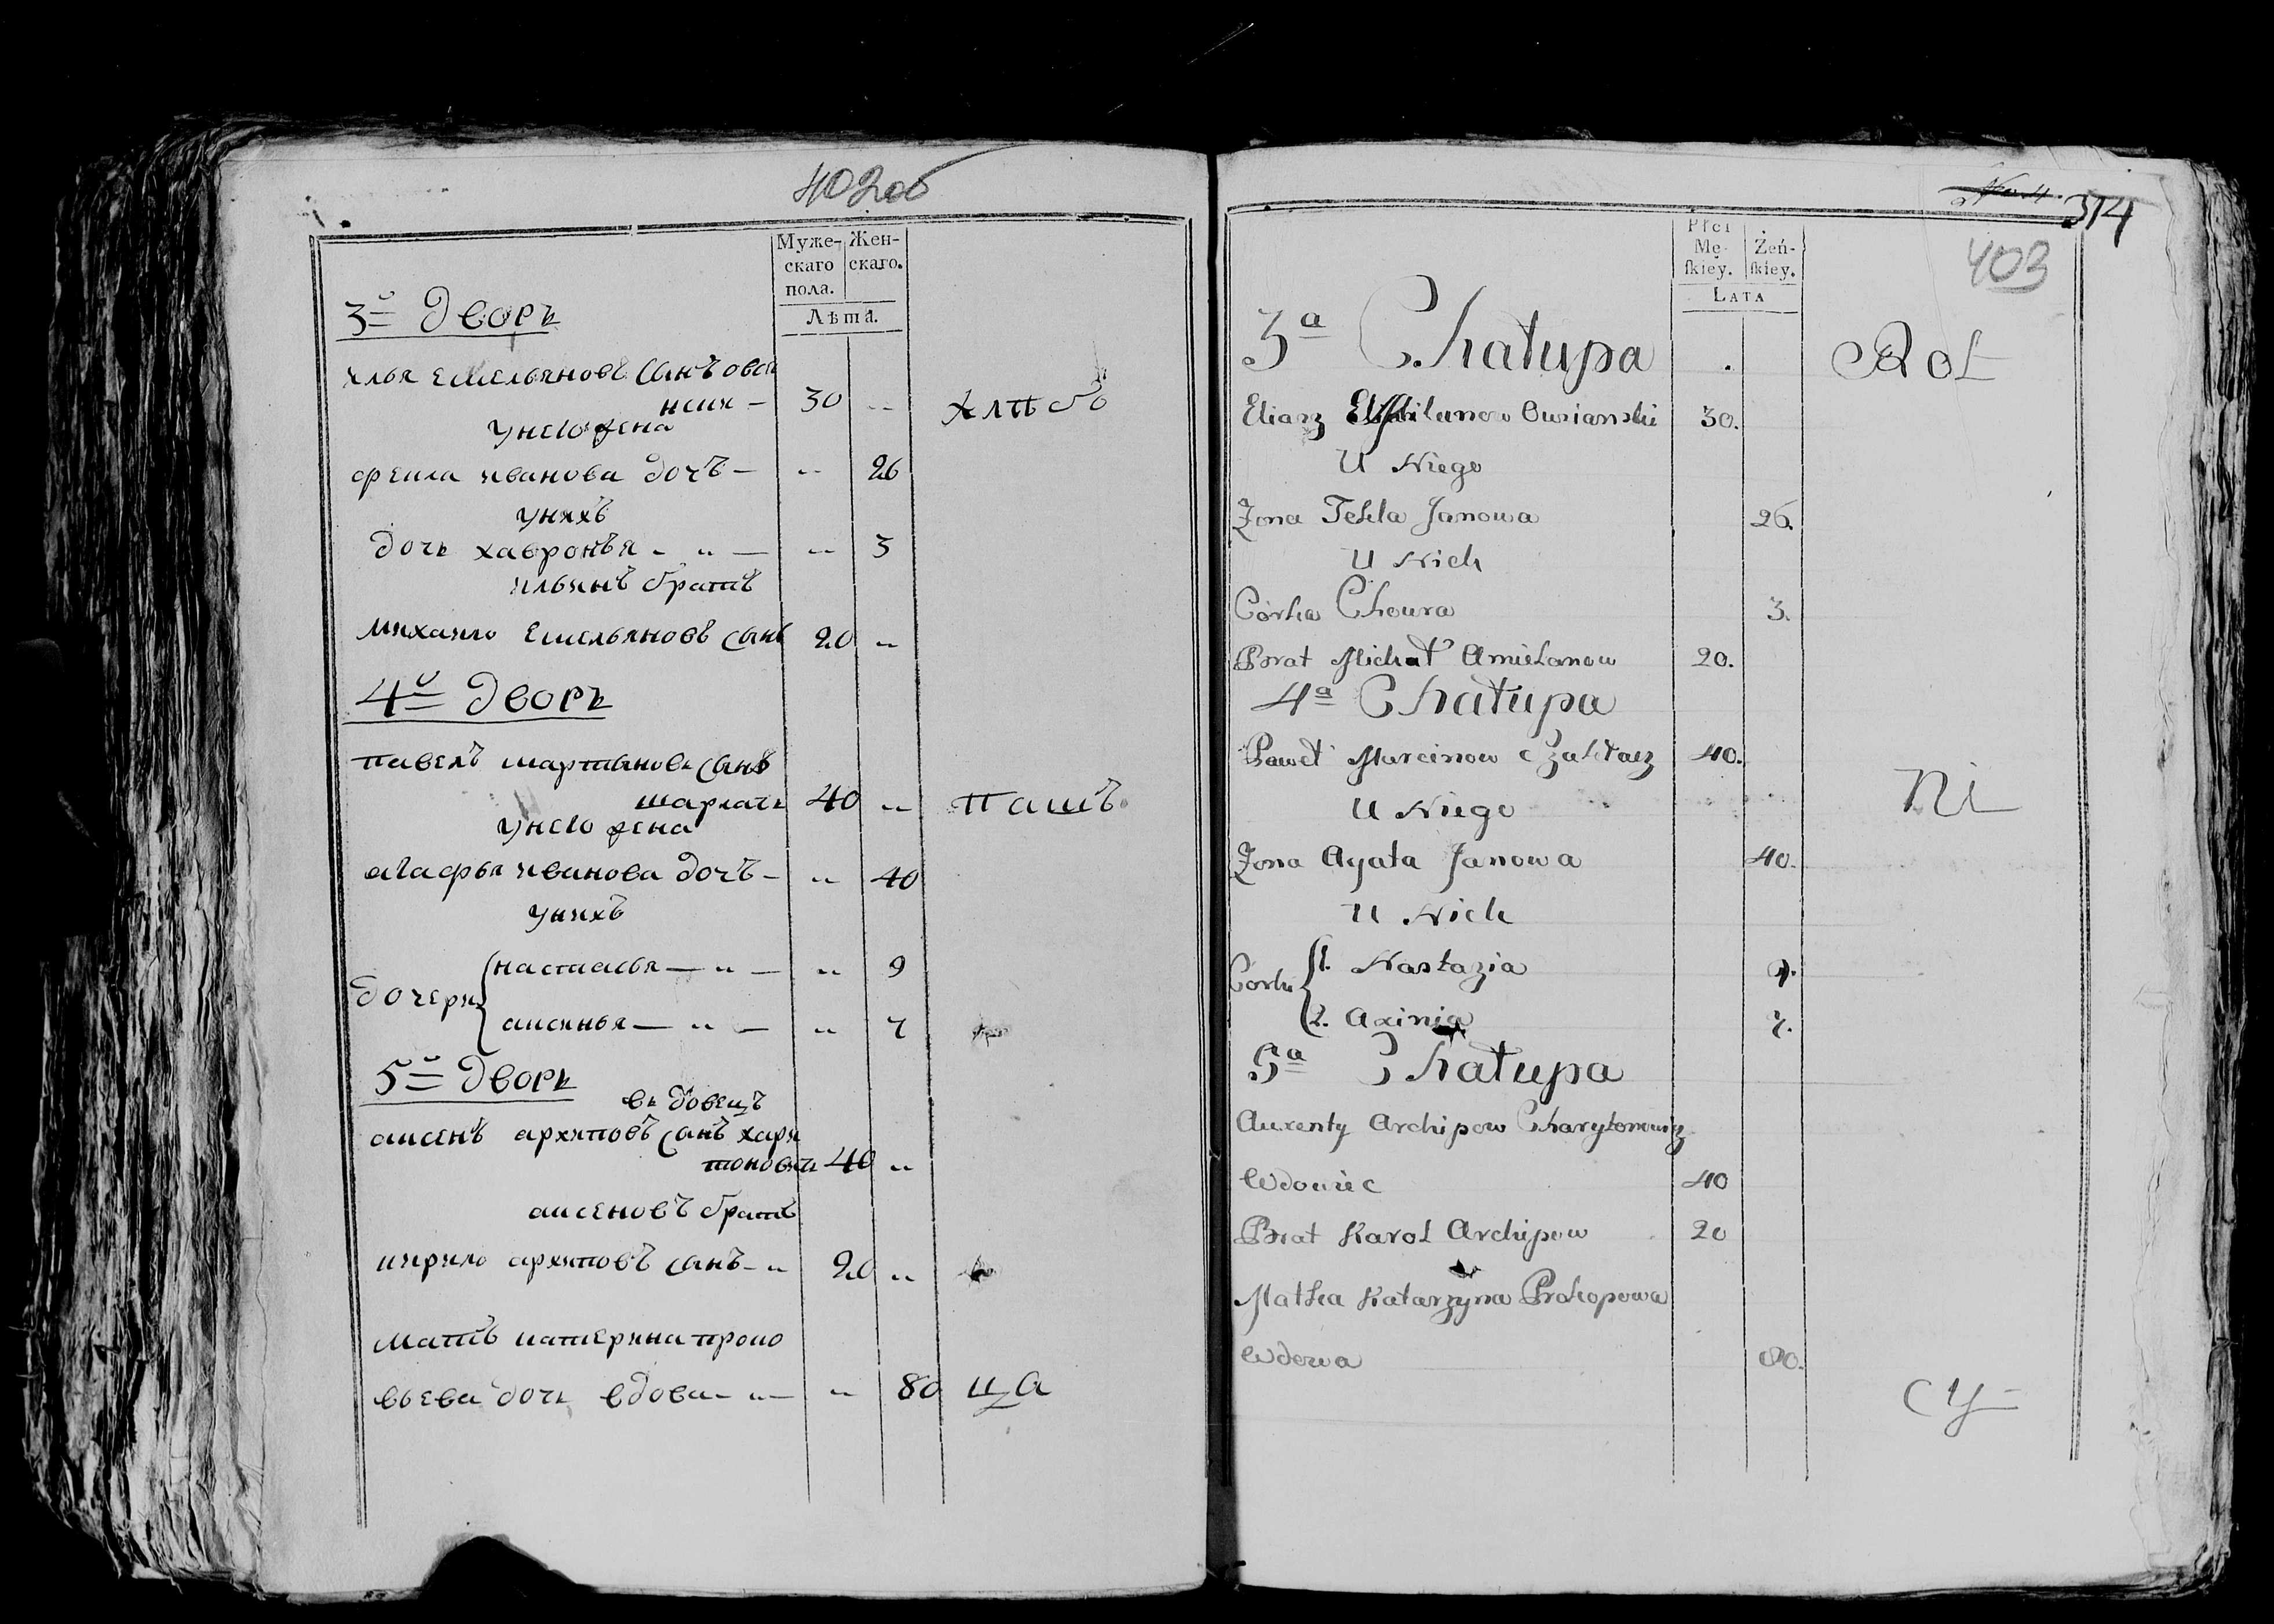 402об
Муже- Жен-
скаго скаго.
пола.
Лѣта.
3й Дворъ
илья емельяновъ сынъ овся
нник — 30 „
хлѣбо
унего жена
фекла иванова дочъ — „ 26
унихъ
дочь хавронья „ — „ 3
ильинъ братъ
михаило емельяновъ сынъ 20 „
4й Дворъ
павелъ мартиновъ сынъ
40 „ пашъ
унего жена
агафья иванова дочъ — „ 40
унихъ
дочери настасья — „ — „ 9
аксинья — „ — „ 7
5й Дворъ
вдовецъ
аксенъ архиповъ сынъ хари
тоновичъ 40 „
аксеновъ братъ
кирило архиповъ сынъ — „ 20 „
матъ катерина проко
вьева дочь вдова — „ — „ 80 ца
314
403
Płci
Mę- Żeń-
skiey. skiey.
LATA
3a Chałupa
Rol
Eliasz Owsianski 30.
U Niego
Zona Tekla Janowa 26.
U Nich
Córka Choura 3.
Brat Michał Amielanow 20.
4a Chałupa
Paweł Marcinow 40.
ni
U Niego
Zona Agata Janowa 40.
U Nich
Corki 1. Nastazia 9.
2. Axinia 7.
5a Chałupa
Auxenty Archipow Charytonowicz
Wdowiec 40
Brat Karol Archipow 20
Matka Katarzyna Prokopowa
Wdowa 80.
cy